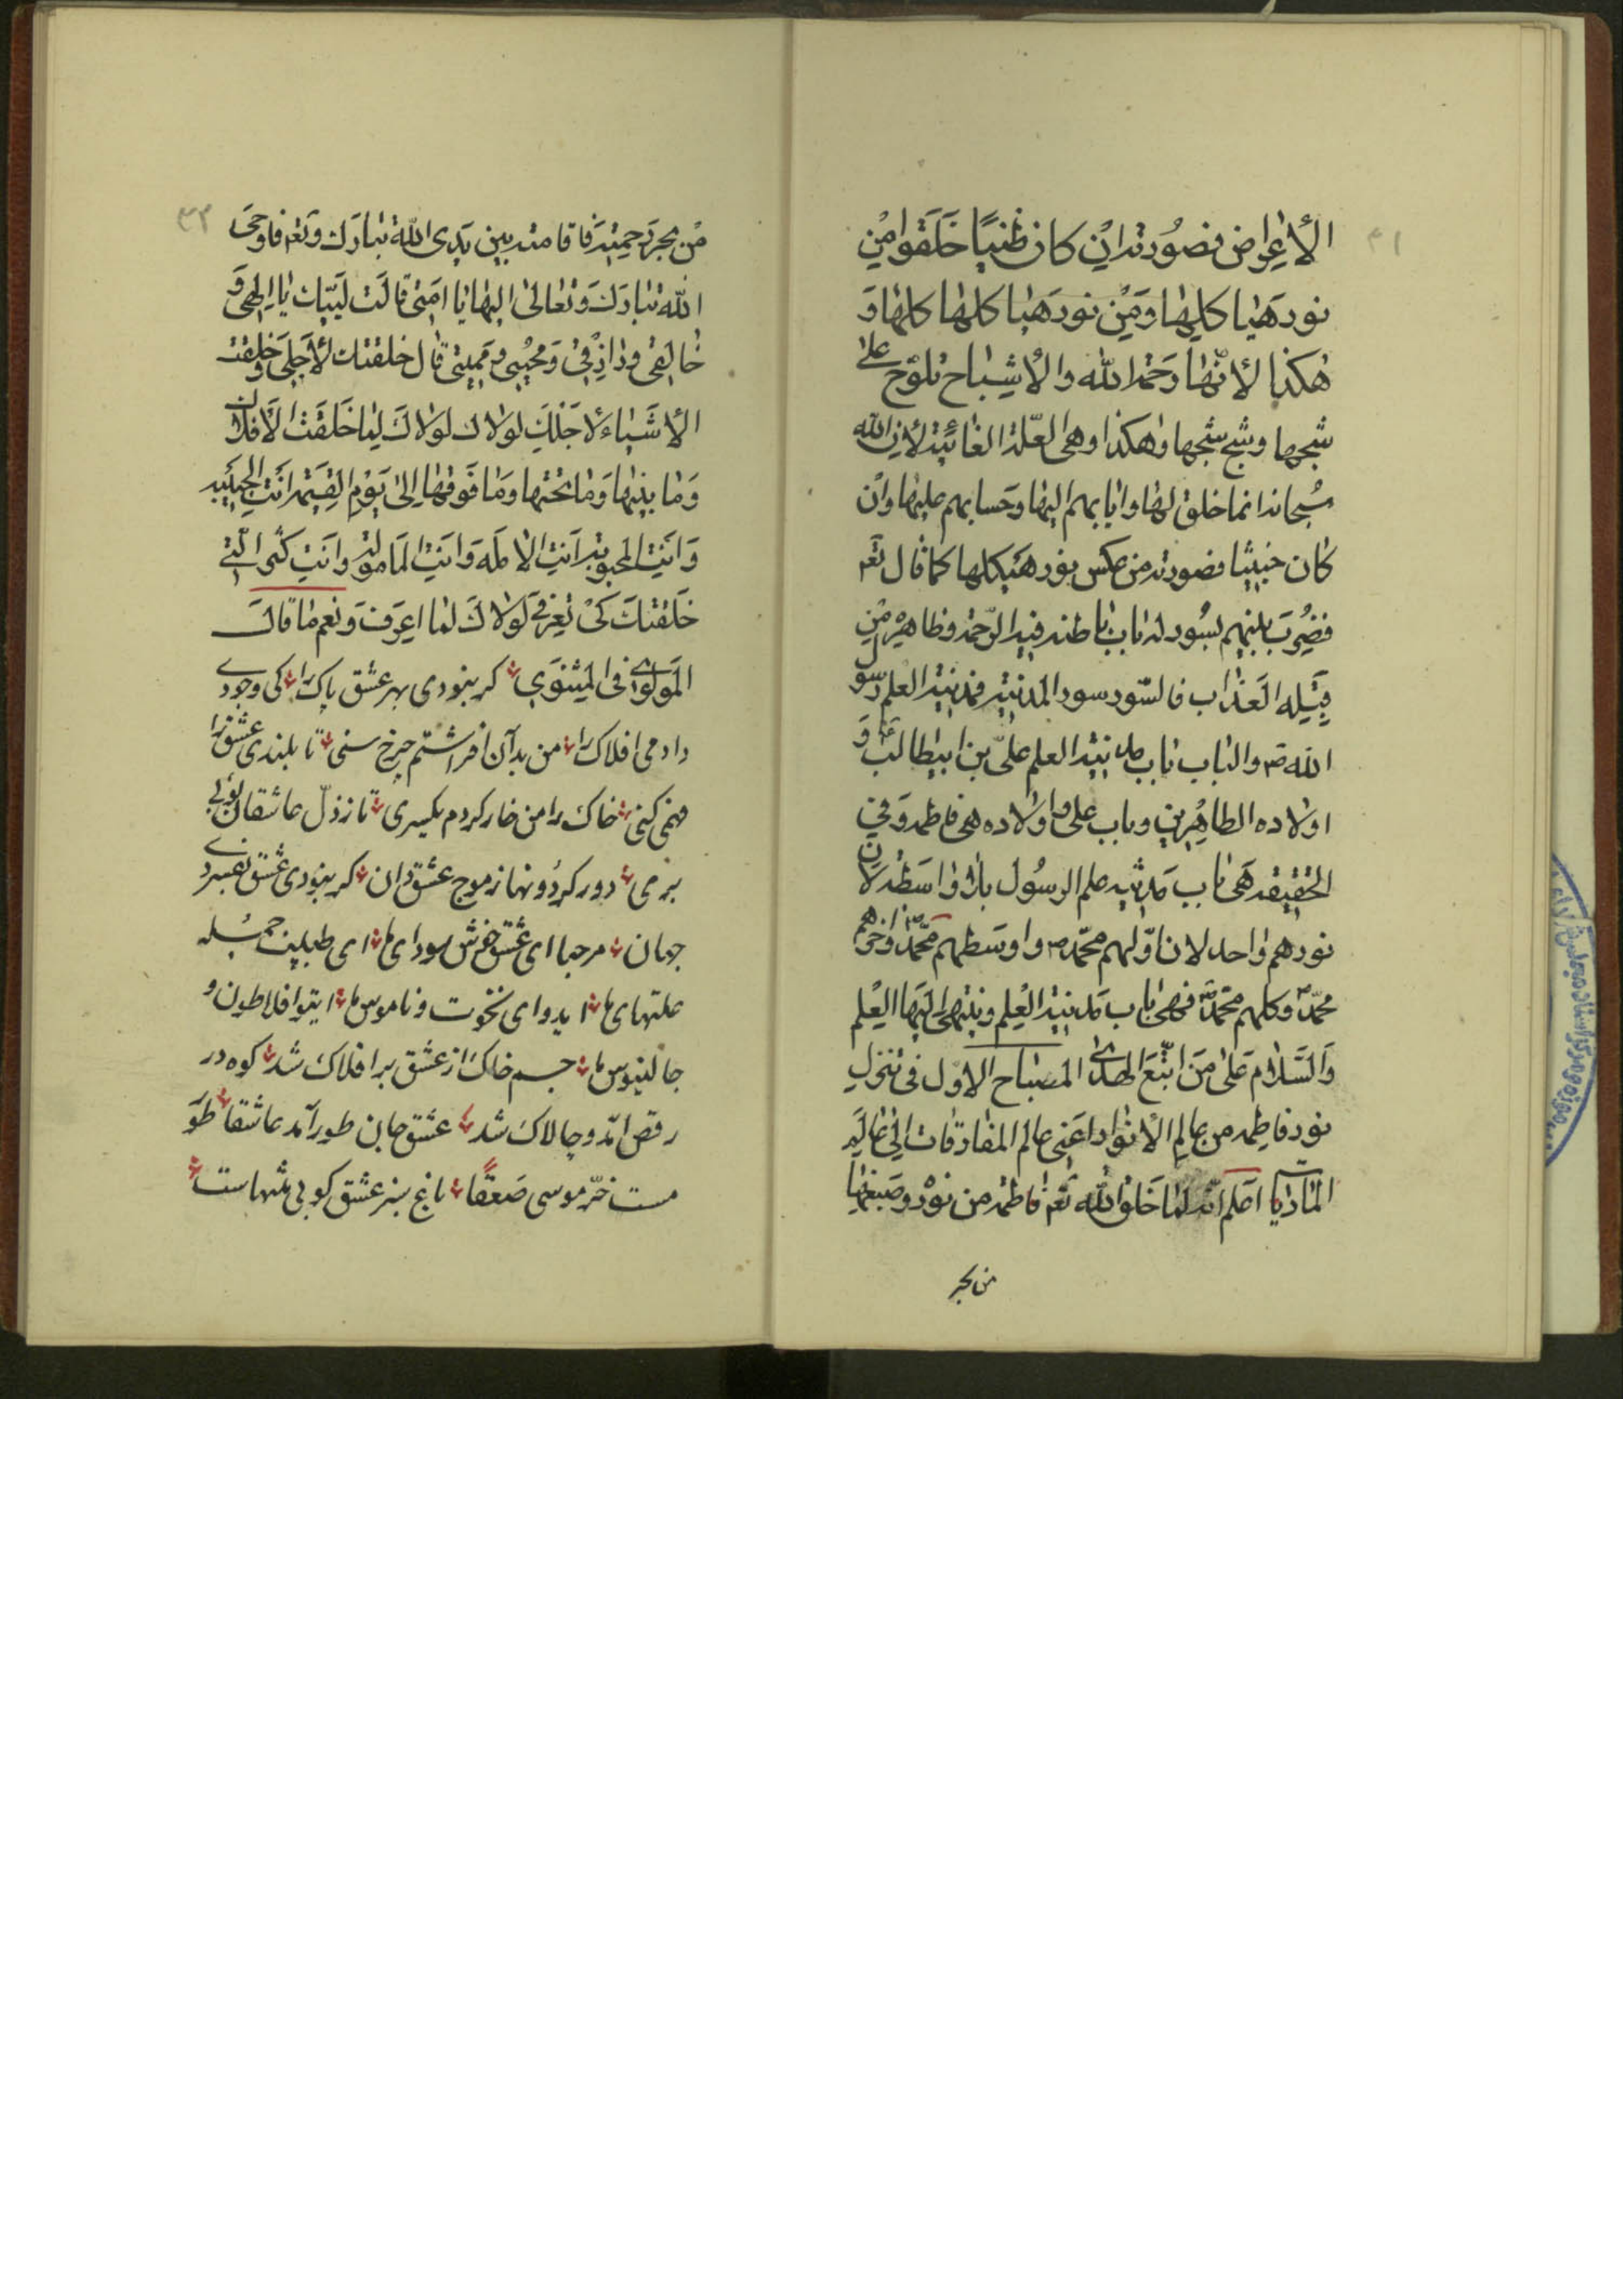 الأعراض فصورته ان كان طيبا خلقوا من
نور هيا كلها ومن نور هيا كلها كلها و
هكذا لأنها رحمة الله والأشباح تلوح على
شبحها وشبح شبحها وهكذا وهى العلة الغائية لأن الله
سبحانه انما خلق لها وايابهم اليها وحسابهم عليها وان
كان خبيثا فصورته من عكس نور هيكلها كما قال تعه
فضرب بينهم بسور له باب باطنه فيه الرحمة وظاهره من
قبله العذاب فالسور سور المدينة فمدينة العلم رسول
الله ص والباب باب مدينة العلم على بن ابيطالب ع و
اولاده الطاهرين وباب على واولاده هى فاطمة وفى
الحقيقة هى باب مدينة علم الرسول بلا واسطة لان
نورهم واحد لان اولهم محمد ص واوسطهم محمد واخرهم
محمد وكلهم محمد فهى باب مدينة العلم وينتهى اليها العلم
والسلام على من اتبع الهدى المصباح الاول فى تنزل
نور فاطمة من عالم الأنوار اعنى عالم المفارقات الى عالم
الماديات اعلم انه لما خلق الله تعه فاطمة من نوره وصبغها
من بحر
٣١
٣٢
من بحر رحميته فاقامته بين يدى الله تبارك وتعه فاوحى
الله تبارك وتعالى اليها يا امتى قالت لبيك يا الهى و
خالقى ورازقى ومحيى ومميتى قال خلقتك لأجلى وخلقت
الأشياء لأجلك لولاك لولاك لما خلقت الأفلاك
وما بينها وما تحتها وما فوقها الى يوم القيمة انت الحبيبة
وانت المحبوبة انت الاملة وانت المامولة وانت كنزى التى
خلقتك كى تعرفى لولاك لما اعرف ونعم ما قال
المولوى فى المثنوى كر نبودى بهر عشق پاك را كى وجودى
دادمى افلاك را من بدآن افراشتم چرخ سنى تا بلندى عشق را
فهمى كنى خاك را من خار كردم يكسرى تا ز ذل عاشقان بوئى
برمى دور كردونها ز موج عشق دان كر نبودى عشق بفسردى
جهان مرحبا اى عشق خوش سوداى ما اى طبيب جمله
علتهاى ما ايدواى نخوت و ناموس ما ايتو افلاطون و
جالينوس ما جسم خاك از عشق بر افلاك شد كوه در
رقص امد و چالاك شد عشق جان طور آمد عاشقا طور
مست خر موسى صعقا باغ سبز عشق كو بى منتهاست